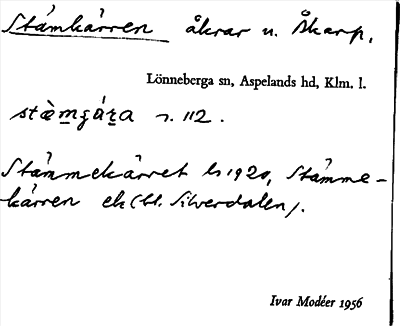 Stämkärren åkrar u. Åkarp.
Lönneberga sn, Aspelands hd, Klm. l.
stæ̀mɡára r. 112.
Stämmekärret ls 1920, Stämme-
kärren ek (bl. Silverdalen).
Ivar Modéer 1956